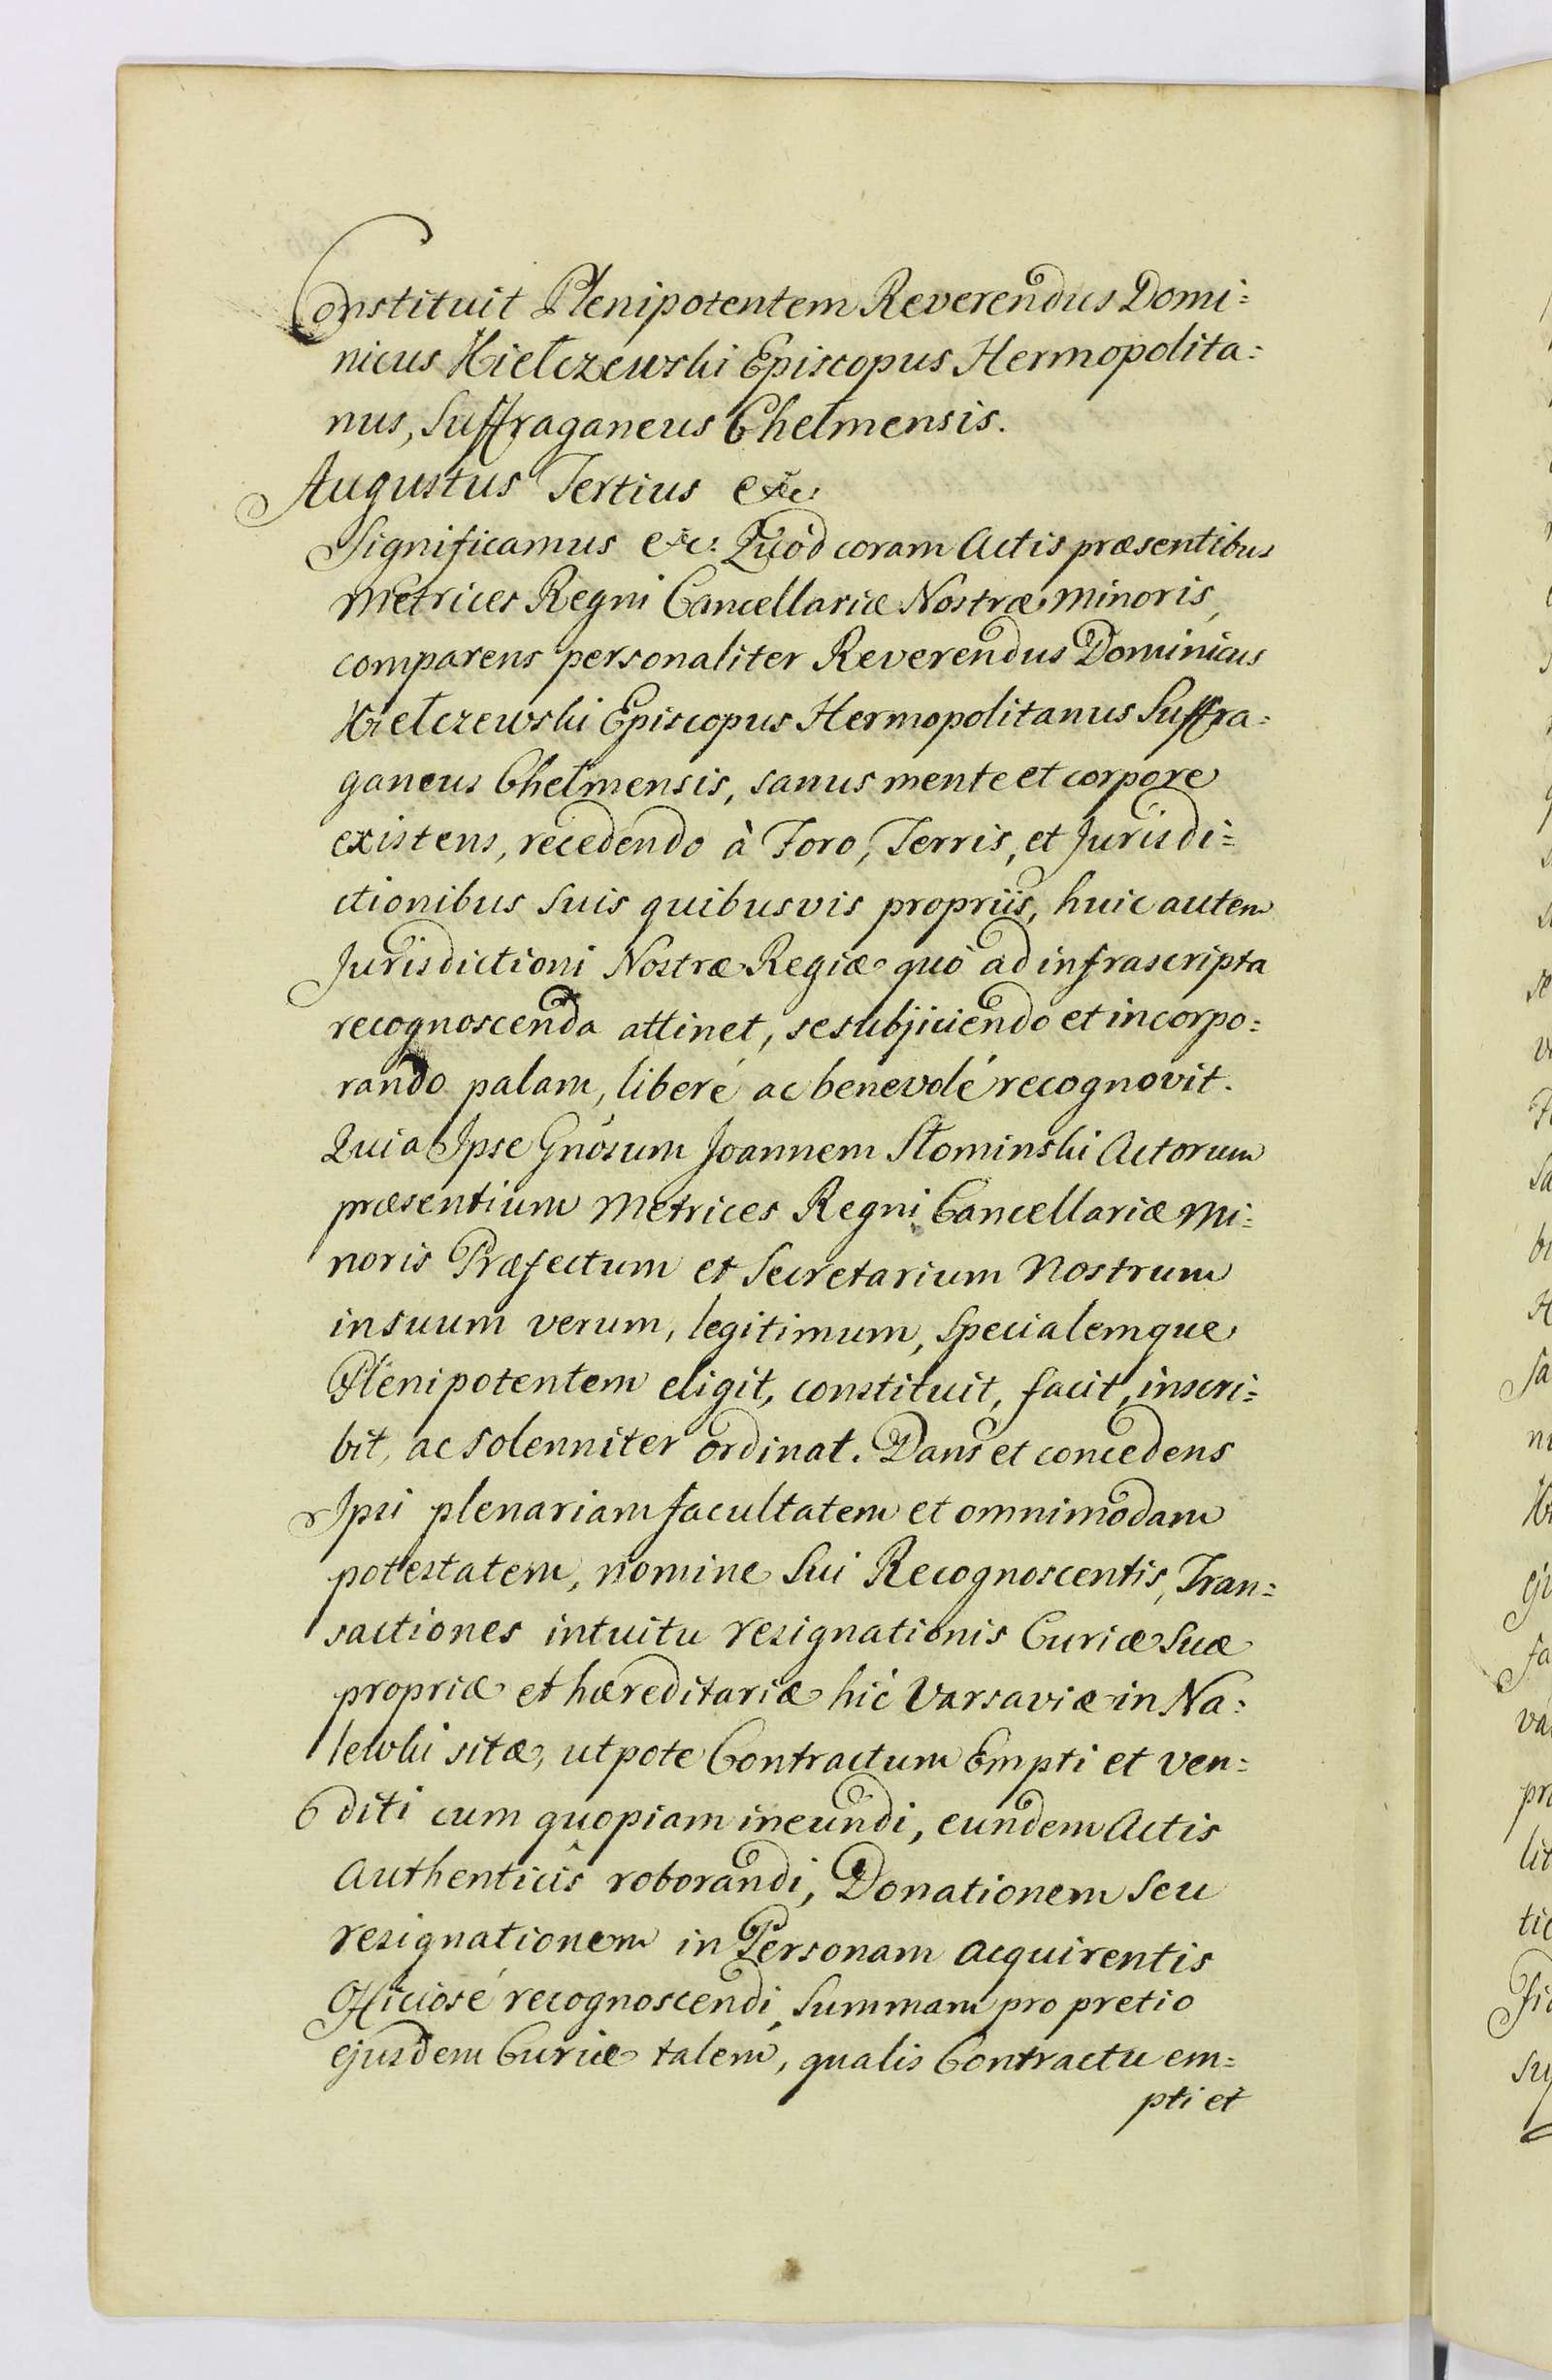 Constituit Plenipotentem Reverendus Domi=
nicus Kiełczewski Episcopus Hermopolita=
nus, Suffraganeus Chełmensis.
Augustus Tertius etc:
Significamus etc: Quòd coram Actis præsentibus
Metrices Regni Cancellariæ Nostræ Minoris,
comparens personaliter Reverendus Dominicus
Kiełczewski Episcopus Hermopolitanus Suffra=
ganeus Chełmensis, sanus mente et corpore
existens, recedendo à Foro, Terris, et Jurisdi=
ctionibus suis quibusvis propriis, huic autem
Jurisdictioni Nostræ Regiæ quò ad infrascripta
recognoscenda attinet, se subjiciendo et incorpo=
rando palam, liberé ac benevolé recognovit.
Quia Ipse Gnosum Joannem Słominski Actorum
præsentium Metrices Regni Cancellariæ Mi=
noris Præfectum et Secretarium Nostrum
in suum verum, legitimum, Specialemque
Plenipotentem eligit, constituit, facit, inscri=
bit, ac solenniter ordinat. Dans et concedens
Ipsi plenariam facultatem et omnimodam
potestatem, nomine Sui Recognoscentis, Tran=
sactiones intuitu resignationis Curiæ Suæ
propriæ et hæreditariæ hic Varsaviæ in Na=
lewki sitæ, utpote Contractum Empti et Ven=
diti cum quopiam ineundi, eundem Actis
Authenticis roborandi, Donationem seu
resignationem in Personam acquirentis
Officiosé recognoscendi, Summam pro pretio
ejusdem Curiæ talem, qualis Contractu em=
pti et